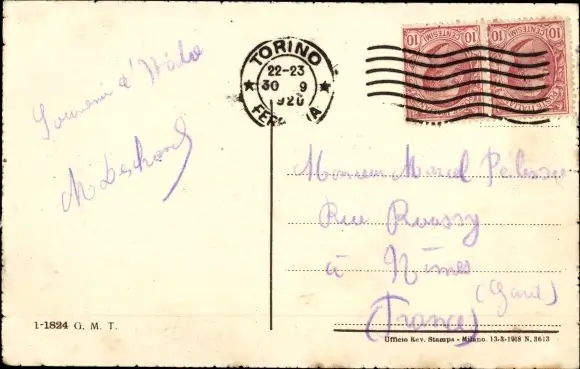 TORINO
22-23
30 9
1920
FERROVIA
10 CENTESIMI 10
10 CENTESIMI 10
Souvenir d'Italie
Monsieur Marcel
Rue Roussy
à Nîmes
(Gard)
(France)
1-1824 G. M. T.
Ufficio Rev. Stampa - Milano 13-3-1918 N. 3613